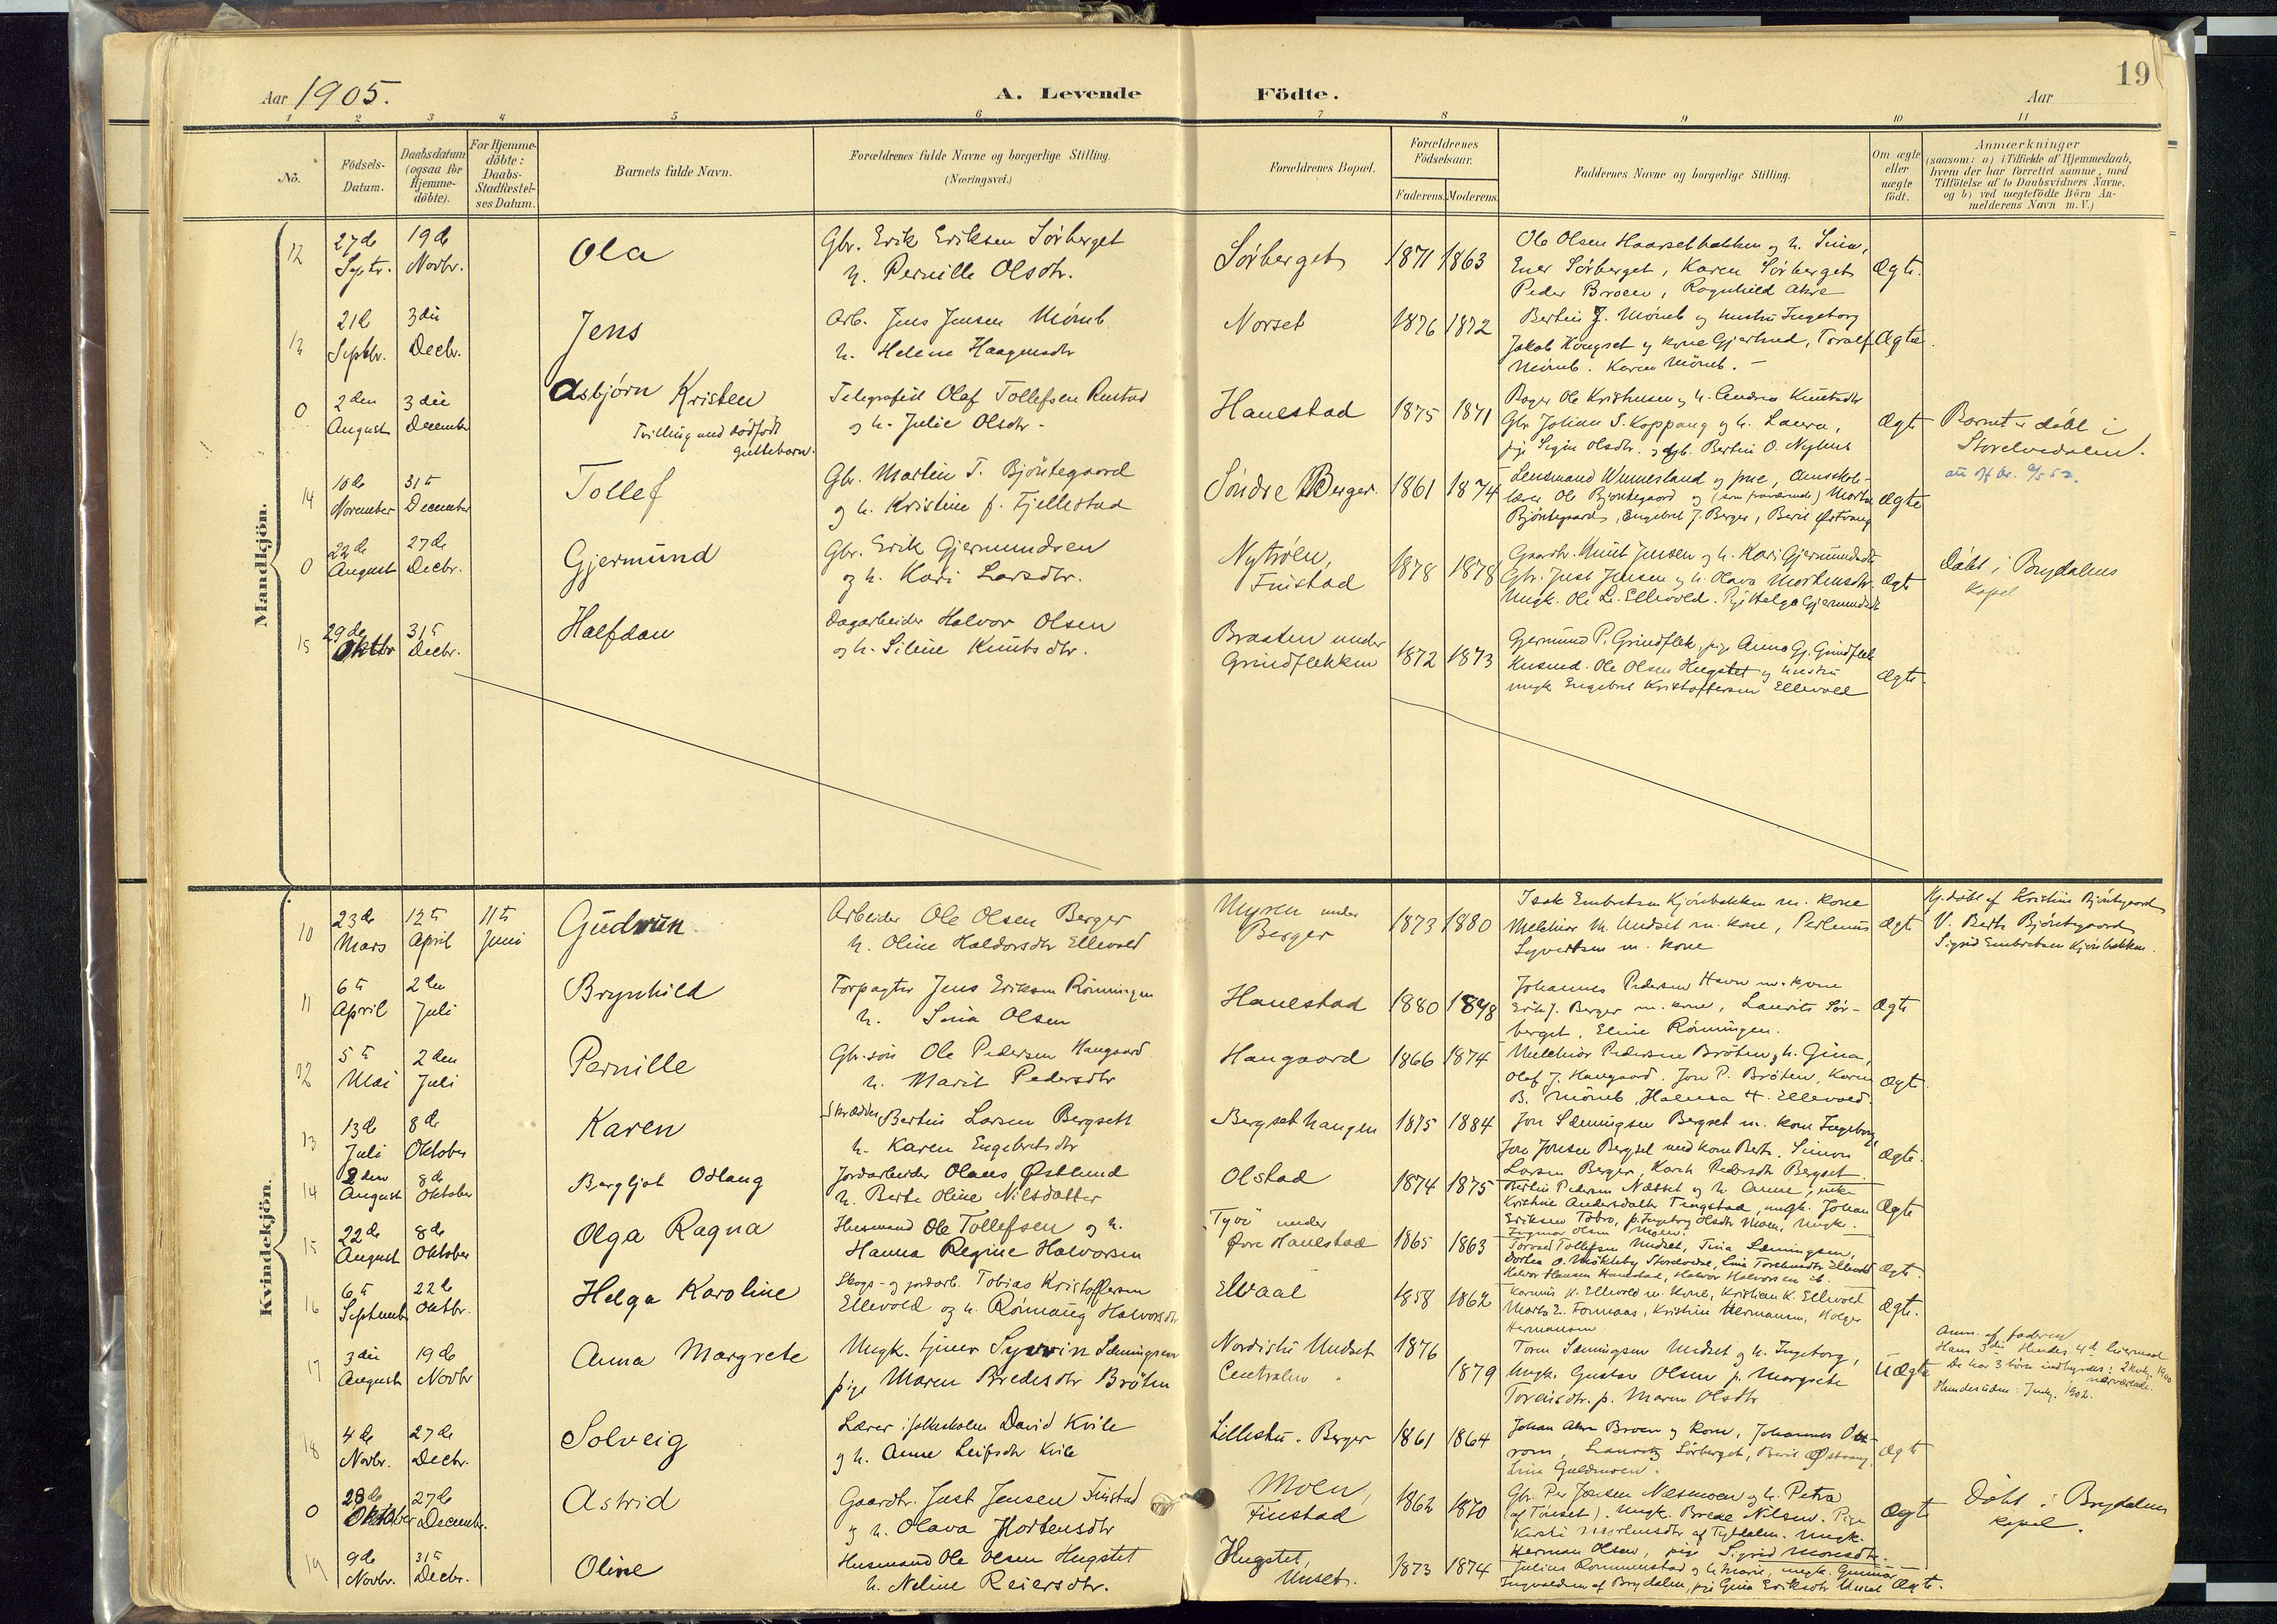 Aar 1905.
A. Levende Födte.
Aar
19
1 2 3 4 5 6 7 8 9 10 11
No.
Födsels-Datum.
Daabsdatum (ogsaa for Hjemme-döbte).
For Hjemme-döbte: Daabs-Stadfæstel-ses Datum.
Barnets fulde Navn.
Forældrenes fulde Navne og borgerlige Stilling.
(Næringsvei.)
Forældrenes Bopæl.
Forældrenes Födselsaar.
Faderens. Moderens.
Faddernes Navne og borgerlige Stilling.
Om ægte eller uægte födt.
Anmærkninger
(saasom: a) i Tilfælde af Hjemmedaab,
hvem der har forrettet samme, med
Tilföielse af to Daabsvidners Navne,
og b) ved uægtefödte Börn An-
melderens Navn m. V.)
Mandkjön.
12 27de Septr. 19de Novbr.
Ola
Gbr. Erik Eriksen Sörberget
h. Pernille Olsdtr.
Sörberget 1871 1863
Ole Olsen Haarsetbakken og h. Sina,
Ener Sörberget, Karen Sörberget
Peder Broen, Ragnhild Akre
Ægte.
13 21de Septbr. 3die Decbr.
Jens
Arb. Jens Jensen Mömb
h. Helene Haagensdtr
Norset 1876 1872
Bertin J. Mömb og hustru Ingeborg
Jakob Haugset og kone Gjertrud, Toralf
Mömb. Karen Mömb. -
Ægte.
0 2den August 3die December
Asbjörn Kristen
Tvilling med dödfödt
guttebarn.
Telegrafist Olaf Tollefsen Rustad
og h. Julie Olsdtr -
Hanestad 1875 1871
Roger Ole Kristiansen og h. Andrea Knutsdtr
Gbr. Johan S. Koppang og h. Laura,
pige Signe Olsdtr. og Bertin O. Nyhus
Ægte
Barnet er döbt i
Storelvedalen.
14 10de November 31te December
Tollef
Gbr. Martin T. Bjöntegaard
og h. Kristine f. Fjellestad
Söndre Berger. 1861 1874
Lensmand Wemmesland og frue, Amtskole-
lærer Ole Bjöntegaard og (som fraværende) Marta
Bjöntegaard, Engebret J. Berger, Berit Östvang
Ægte
0 22de August 27de Decbr.
Gjermund
Gbr. Erik Gjermundsen
og h. Kari Larsdtr.
Nytröen, Finstad 1878 1878
Gaardbr. Knut Jensen og h. Kari Gjermundsdtr
Gbr. Just Jensen og h. Olava Mortensdtr.
Ungk. Ole L. Ellevold. Pige Helga Gjermundsdtr
Ægte
Döbt i Brydalens
Kapel
15 29de Oktbr 31te Decbr.
Halfdan
Dagarbeider Halvor Olsen
og h. Siline Knutsdtr.
Braaten under
Grindflekken 1872 1873
Gjermund P. Grindflek, pige Anna Gj. Grindflek
Husmd. Ole Olsen Hugstet og hustru
ungk Engebret Kristoffersen Ellevold
Ægte.
Kvindekjön.
10 23de Mars 12te April 11te Juni
Gudrun
Arbeider Ole Olsen Berger
h. Oline Haldorsdtr Ellevold
Myren under
Berger 1873 1880
Isak Embretsen Kjönbakken m. kone
Melchior M. Undset m. kone, Perlenus
Syvertsen m. kone
Ægte
Hj.döbt af Kristine Bjöntegaard
V. Berth Bjöntegaard
Sigrid Embretsen Kjönbakken.
11 6te April 2den Juli
Brynhild
Forpagter Jens Eriksen Rönningen
h. Sina Olsen
Hanestad 1880 1878
Johannes Pedersen Havn m. kone
Erik J. Berger m. kone, Laurits Sör-
berget, Eline Rönningen.
Ægte
12 5te Mai 2den Juli
Pernille
Gbr.sön Ole Pedersen Haugaard
h. Marit Pedersdtr
Haugaard 1866 1874
Melchior Pedersen Bröten og h. Gina,
Olaf J. Haugaard. Jon P. Bröten, Karen
B. Mömb, Halma H. Ellevold.
Ægte
13 13de Juli 8de Oktober
Karen
Skrædder Bertin Larsen Bergset
h. Karen Engebretsdtr
Bergsethaugen 1875 1884
Jon Sæmingsen Bergset m. kone Ingeborg,
Jon Jonsen Bergset med kone Berte. Simon
Larsen Berger, Karen Pedersdtr Bergset
Ægte.
14 2den August 8de Oktober
Bergljot Odlaug
Jordarbeider Olaus Östlund
h. Berte Oline Nilsdatter
Olstad 1874 1875
Bertin Pedersen Næsset og h. Anne, enke
Kristine Andersdatter Tangstad, ungk. Johan
Eriksen Tobro, p. Ingeborg Olsdtr Moen. Ungk.
Ingmar Olsen Moen.
Ægte
15 22de August 8de Oktober
Olga Ragna
Husmand Ole Tollefsen og h.
Hanna Regine Halvorsen
"Tyve" under
Övre Hanestad 1865 1863
Torvald Tollefsen Undset, Tina Sæmingsen,
Dortea O. Mökleby Storelvedal, Lina Torchensdtr Ellevold
Halvor Hansen Hanestad, Halvor Halvorsen ib.
Ægte.
16 6te September 22de Oktbr.
Helga Karoline
Skogs- og jordarb. Tobias Kristoffersen
Ellevold og h. Rönnaug Halvorsdtr
Elvaal 1858 1862
Rasmus K. Ellevold m. kone, Kristian K. Ellevold
Marta E. Formaas, Kristine Hermansen, Holger
Hermansen
Ægte.
17 3die August 19de Novbr
Anna Margrete
Ungk. tjener Syverin Sæmingsen
pige Maren Bredesdtr Bröten
Nordistu Undset 1876
Centralen " 1879
Tom Sæmingsen Undset og h. Ingeborg,
Ungk. Gustav Olsen p. Margrete
Torersdtr. p. Maren Olsdtr
Uægte
Anm. af faderen
Hans 3die Hendes 4de Leiermaal
De har 3 börn indbyrdes: 2
nærværende.
18 4de Novbr. 27de Decbr.
Solveig
Lærer i folkeskolen David Kvile
og h. Anne Leifsdtr Kvile
Lillestu. Berger 1861 1864
Johan Akre Broen og kone, Johannes Ok-
rom, Lauritz Sörberget, Berit Östvang,
Lina Guldmoen.
Ægte
0 28de Oktober 27de December.
Astrid
Gaardbr. Just Jensen Finstad
og h. Olava Mortensdtr
Moen,
Finstad 1862 1870
Gbr. Per Jonsen Nesmoen og h. Petra
(af Tönset). Ungk. Brede Nilsen. Pige
Kersti Mortensdtr af Tyldalen. Ungk.
Herman Olsen, pige Sigrid Monsdtr.
Ægte
Döbt i Brydalens
Kapel.
19 9de Novbr. 31te Decbr.
Oline
Husmand Ole Olsen Hugstet
h. Neline Reiersdtr.
Hugstet,
Unset. 1873 1874
Julius Rommenstad og h. Marie, ungk. Gunnar
Ingvaldsen af Brydalen, pige Gina Eriksdtr Unset
Ægte.